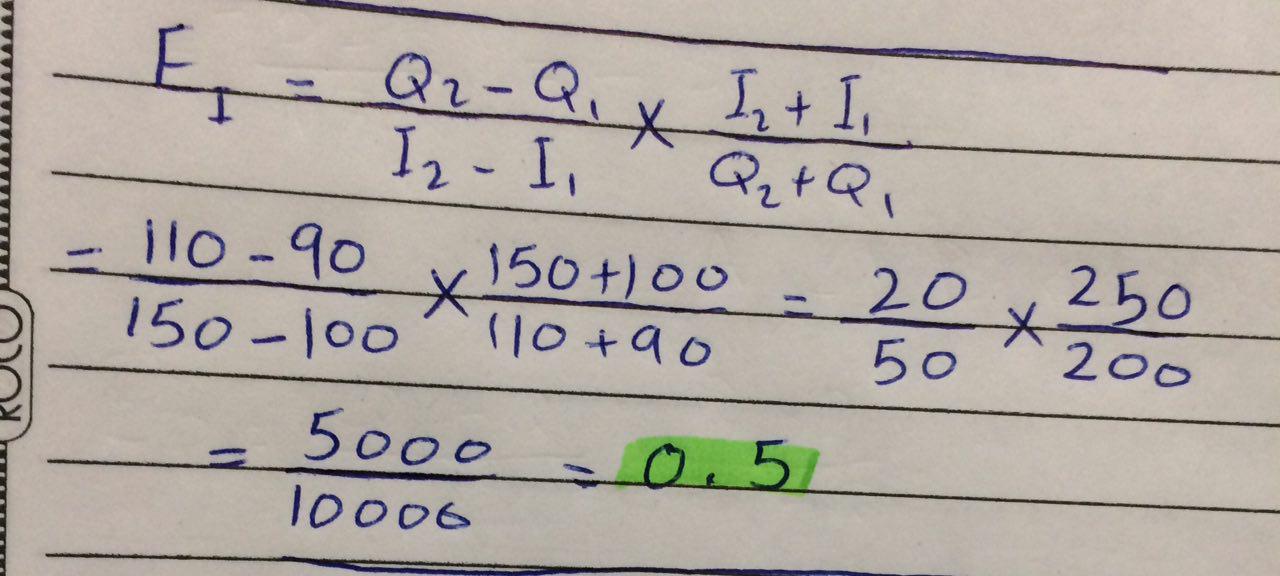 E_I = (Q₂ - Q₁)/(I₂ - I₁) × (I₂ + I₁)/(Q₂ + Q₁)
= (110 - 90)/(150 - 100) × (150 + 100)/(110 + 90) = 20/50 × 250/200
= 5000/10000 = 0.5
ROCO